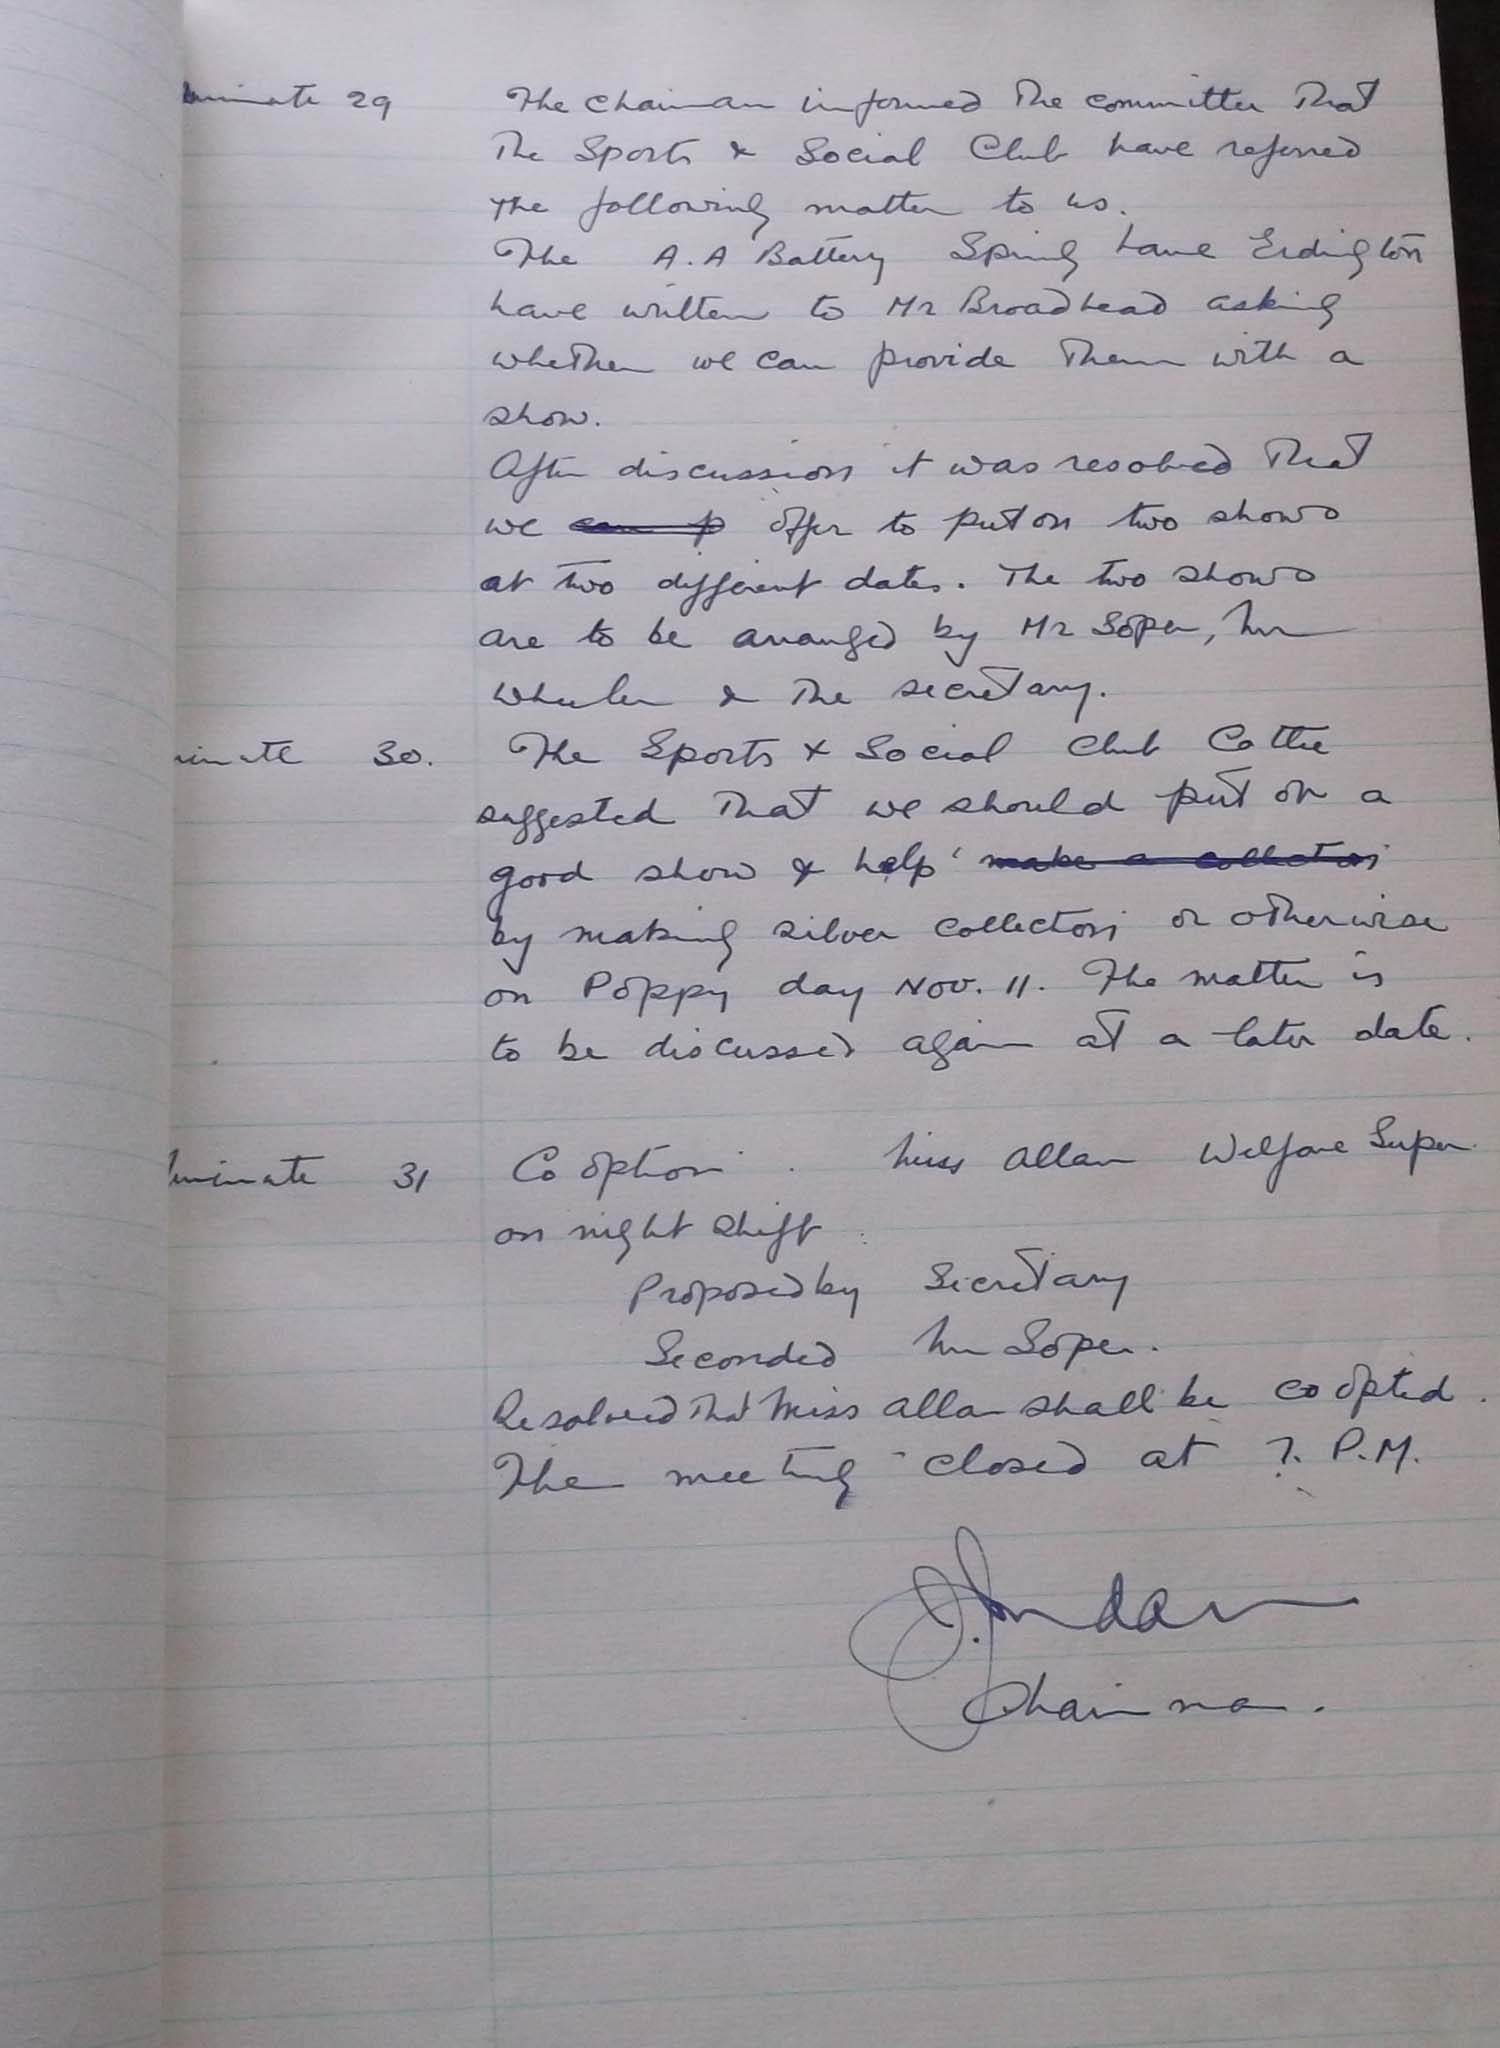 minute 29 The chairman informed the committee that
the Sports & Social Club have referred
the following matter to us.
The A.A Battery Spring Lane Erdington
have written to Mr Broadhead asking
whether we can provide them with a
show.
After discussion it was resolved that
we can p offer to put on two shows
at two different dates. The two shows
are to be arranged by Mr Soper, Mr
Wheeler & the secretary.
minute 30. The Sports & Social Club Cottee
suggested that we should put on a
good show & help make a collection
by making silver collection or otherwise
on Poppy day Nov. 11. The matter is
to be discussed again at a later date.
minute 31 Co option. Miss Allan Welfare Super.
on night shift.
Proposed by Secretary
Seconded Mr Soper.
Resolved that Miss Allan shall be co opted.
The meeting closed at 7. P.M.
Chairman.